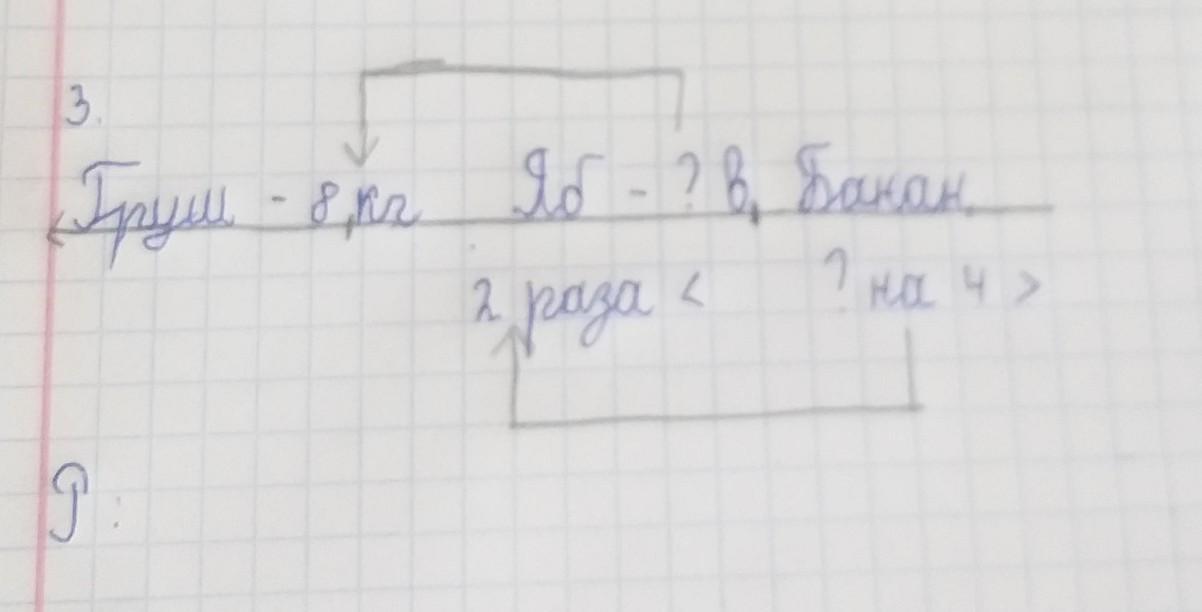 3.
Груш - 8 кг Яб - ? В Банан
2 раза < ? на 4 >
Р: